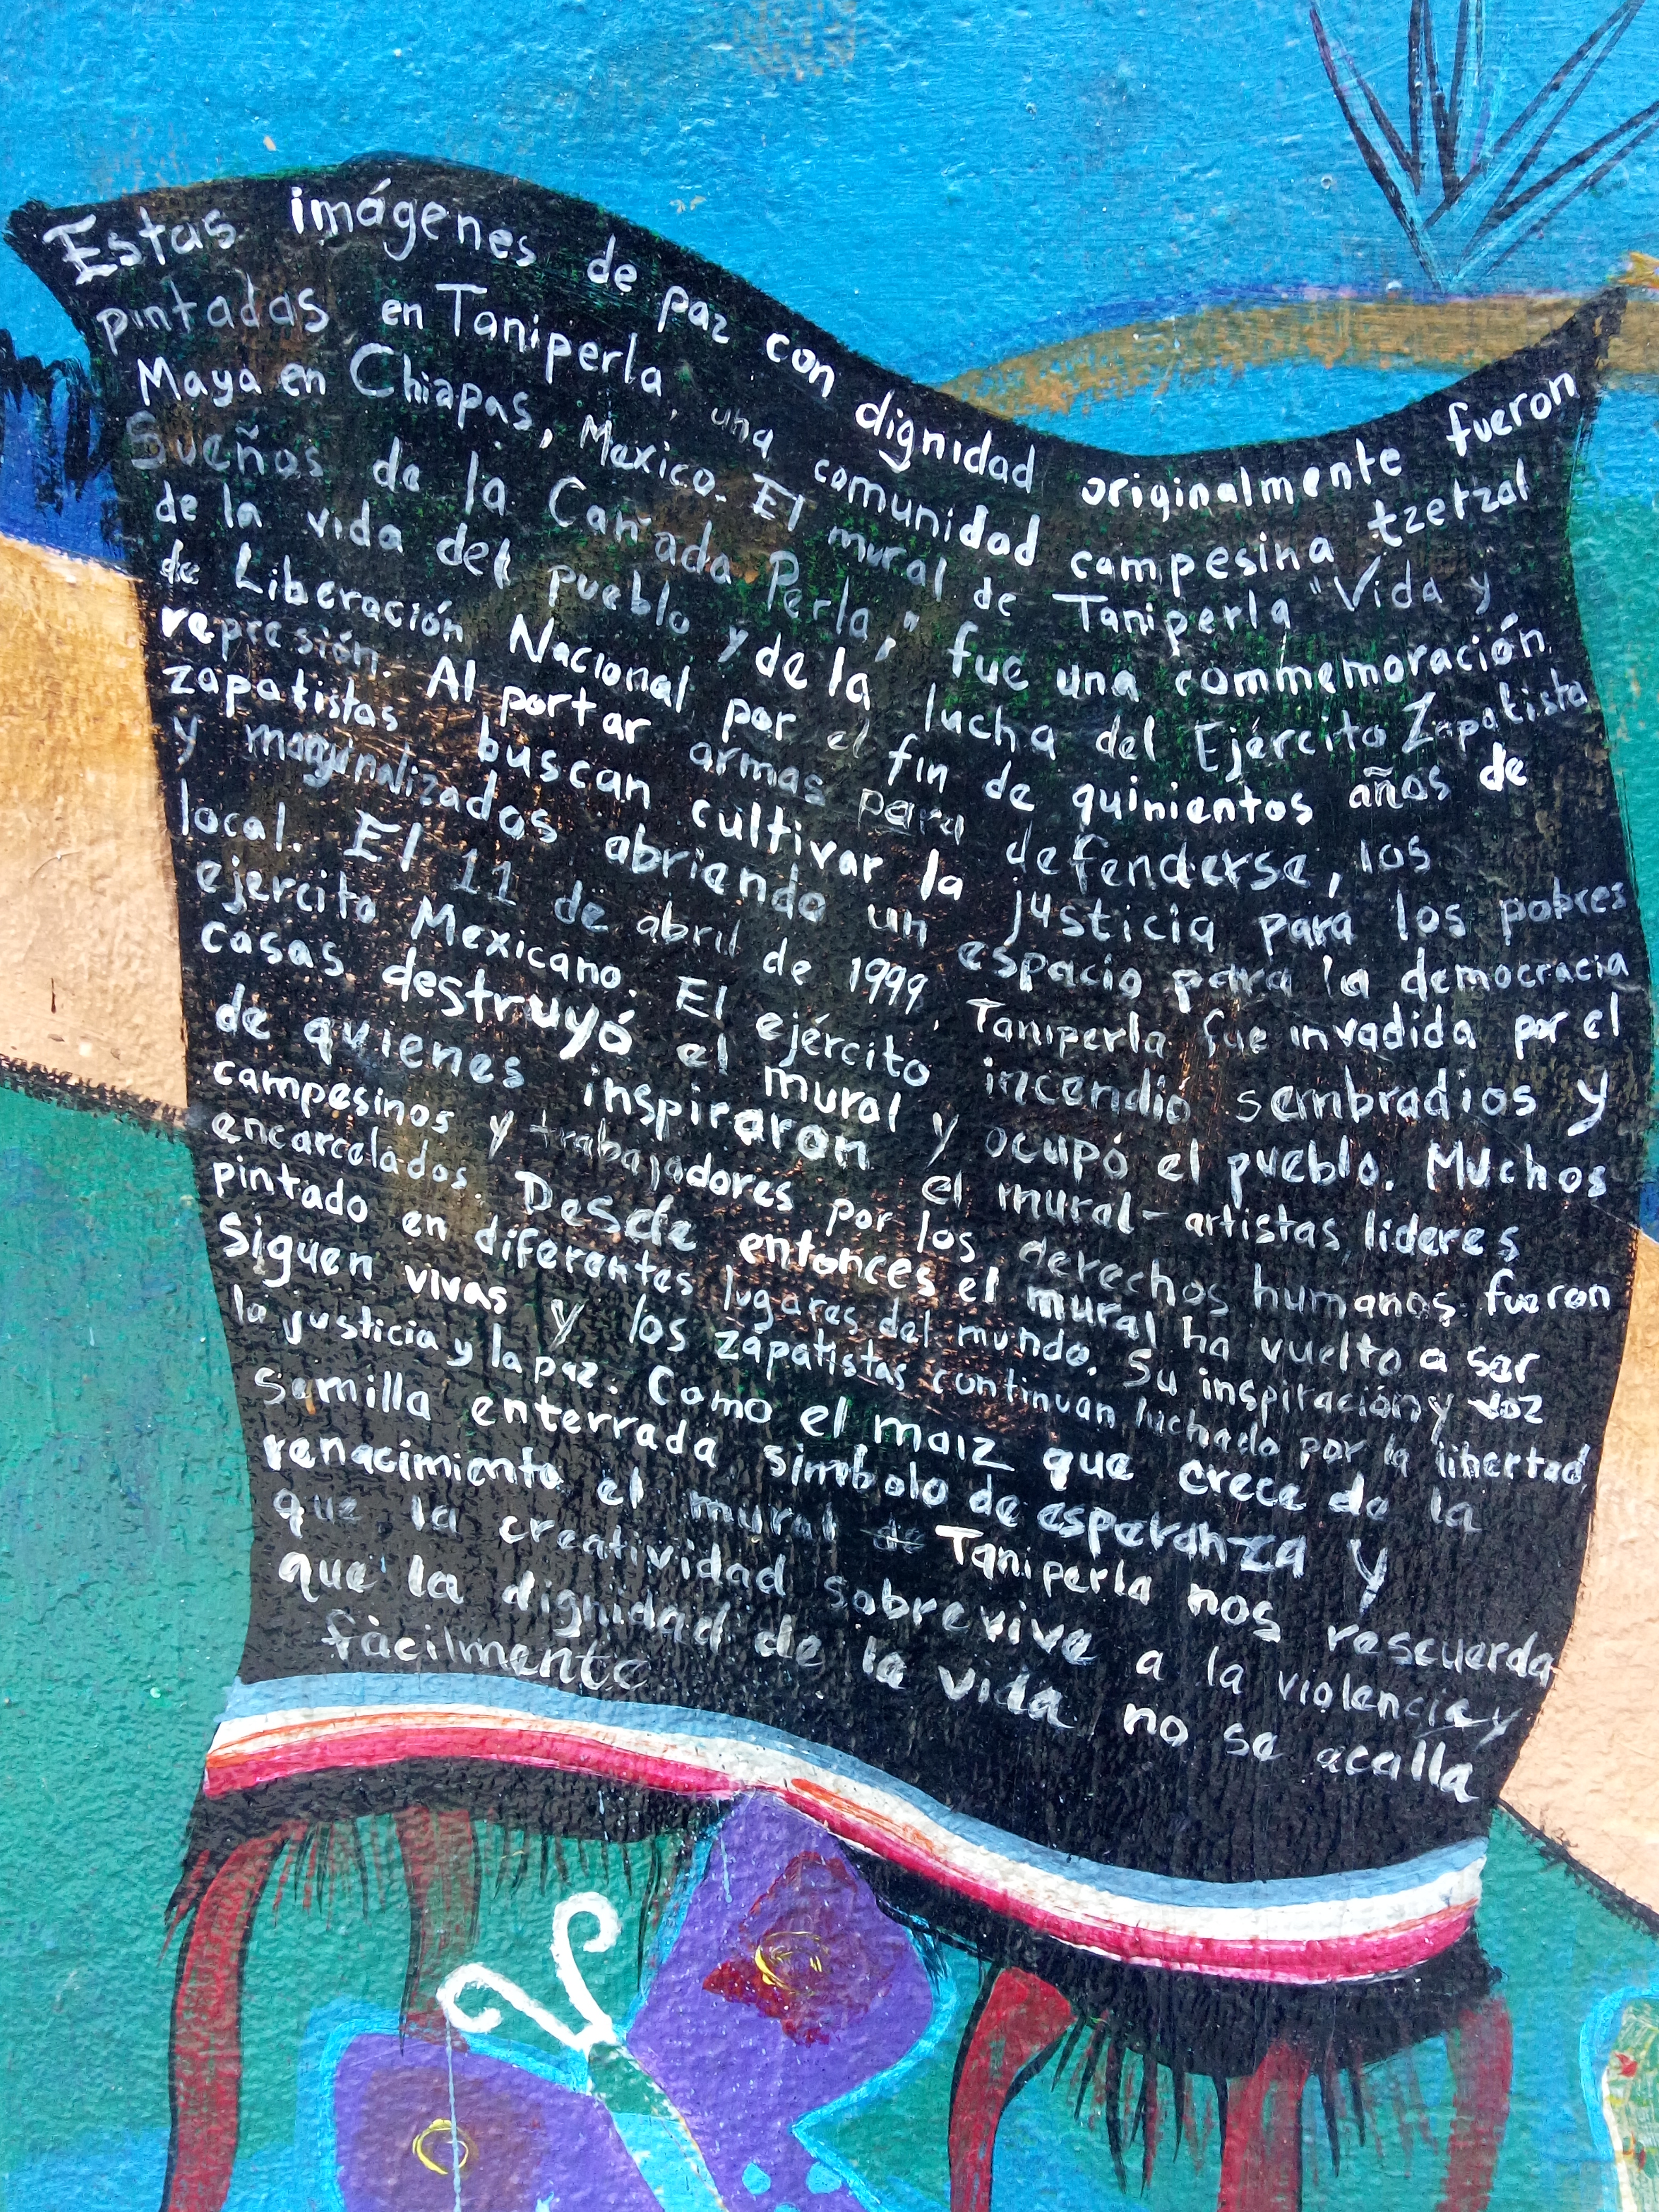 Estas imágenes de paz con dignidad originalmente fueron
pintadas en Taniperla, una comunidad campesina tzetzal
Maya en Chiapas, Mexico. El mural de Taniperla "Vida y
Sueños de la Cañada Perla," fue una commemoración
de la vida del pueblo y de la lucha del Ejército Zapatista
de Liberación Nacional por el fin de quinientos años de
represión. Al portar armas para defenderse, los
zapatistas buscan cultivar la justicia para los pobres
y marginalizados abriendo un espacio para la democracia
local. El 11 de abril de 1999, Taniperla fue invadida por el
ejercito Mexicano. El ejército incendió sembradios y
casas, destruyó el mural y ocupó el pueblo. Muchos
de quienes inspiraron el mural - artistas, lideres
campesinos y trabajadores por los derechos humanos fueron
encarcelados. Desde entonces el mural ha vuelto a ser
pintado en diferentes lugares del mundo. Su inspiración y voz
siguen vivas y los zapatistas continuan luchado por la libertad,
la justicia y la paz. Como el maiz que crece de la
semilla enterrada simbolo de esperanza y
renacimiento el mural de Taniperla nos rescuerda
que la creatividad sobrevive a la violencia y
que la dignidad de la vida no se acalla
fácilmente